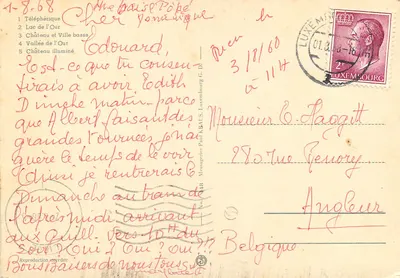 1-8.68
Cher
1 Téléphérique
2 Luc de l'Our
3 Château et Ville basse
4 Vallée de l'Our
5 Château illuminé
Edouard,
Est-ce que tu consen-
tirais à avoir Edith
Dimanche matin, parce
que Albert faisant des
grandes tournées, j'ai
guère le temps de le voir
Et ainsi je rentrerais le
Dimanche au train de
l'après-midi arrivant
aux Guill. vers 10H du
soir? Oui? Oui? Oui???
Bons Baisers de nous tous
Reproduction interdite
reçu le
3/8/60
à 11H
LUXEMBOURG
2F
LUXEMBOURG
Monsieur E. Haggitt
180 rue Renory
Angleur
Belgique.